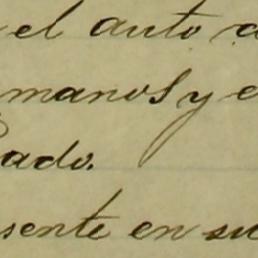 el auto
manos y e
ado.
sente en su